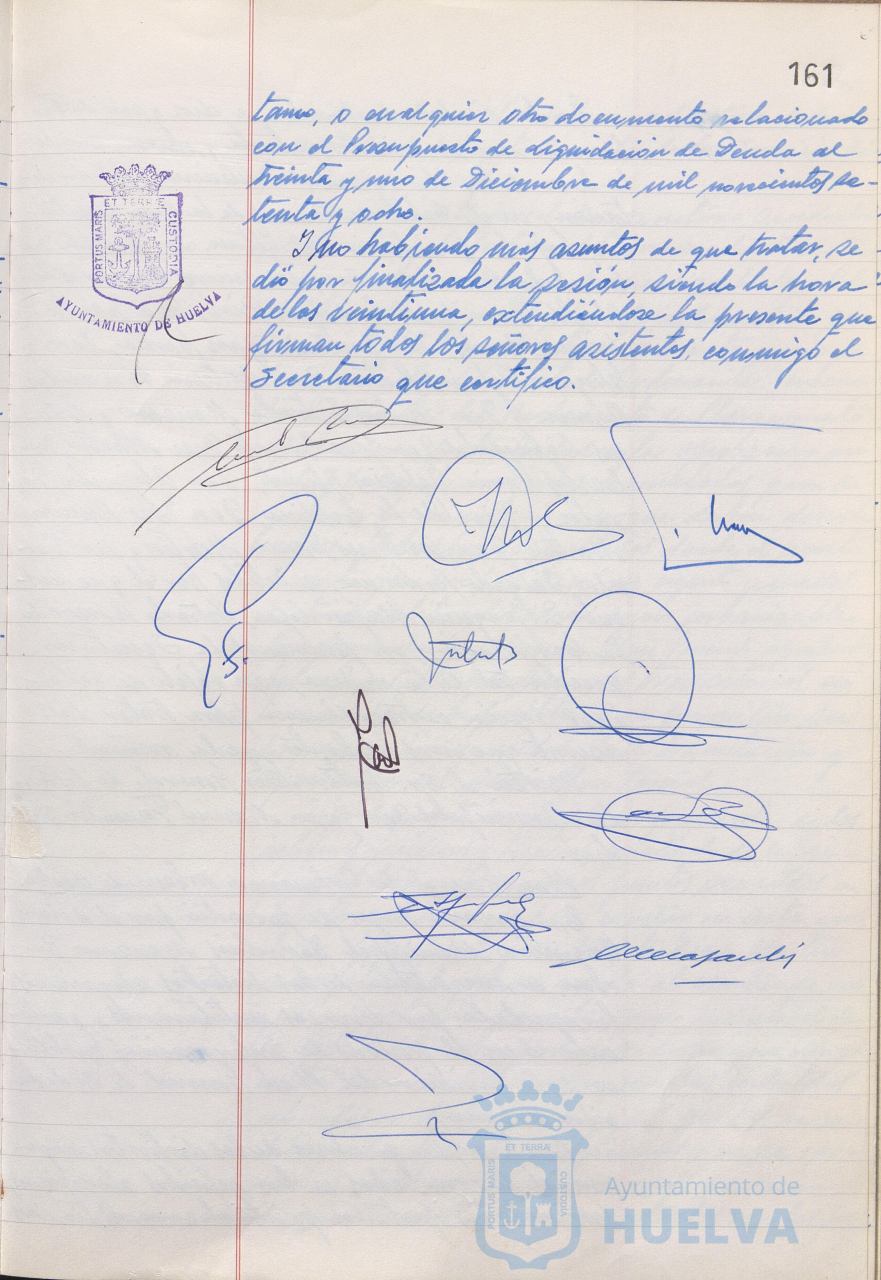 161
tamo, o cualquier otro documento relacionado
con el Presupuesto de Liquidación de Deuda al
treinta y uno de Diciembre de mil novecientos se-
tenta y ocho.
Y no habiendo más asuntos de que tratar, se
dió por finalizada la sesión, siendo la hora
de las veintiuna, extendiéndose la presente que
firman todos los señores asistentes, conmigo el
Secretario que certifico.
PORTUS MARIS ET TERRÆ CUSTODIA
AYUNTAMIENTO DE HUELVA
PORTUS MARIS ET TERRÆ CUSTODIA
Ayuntamiento de
HUELVA